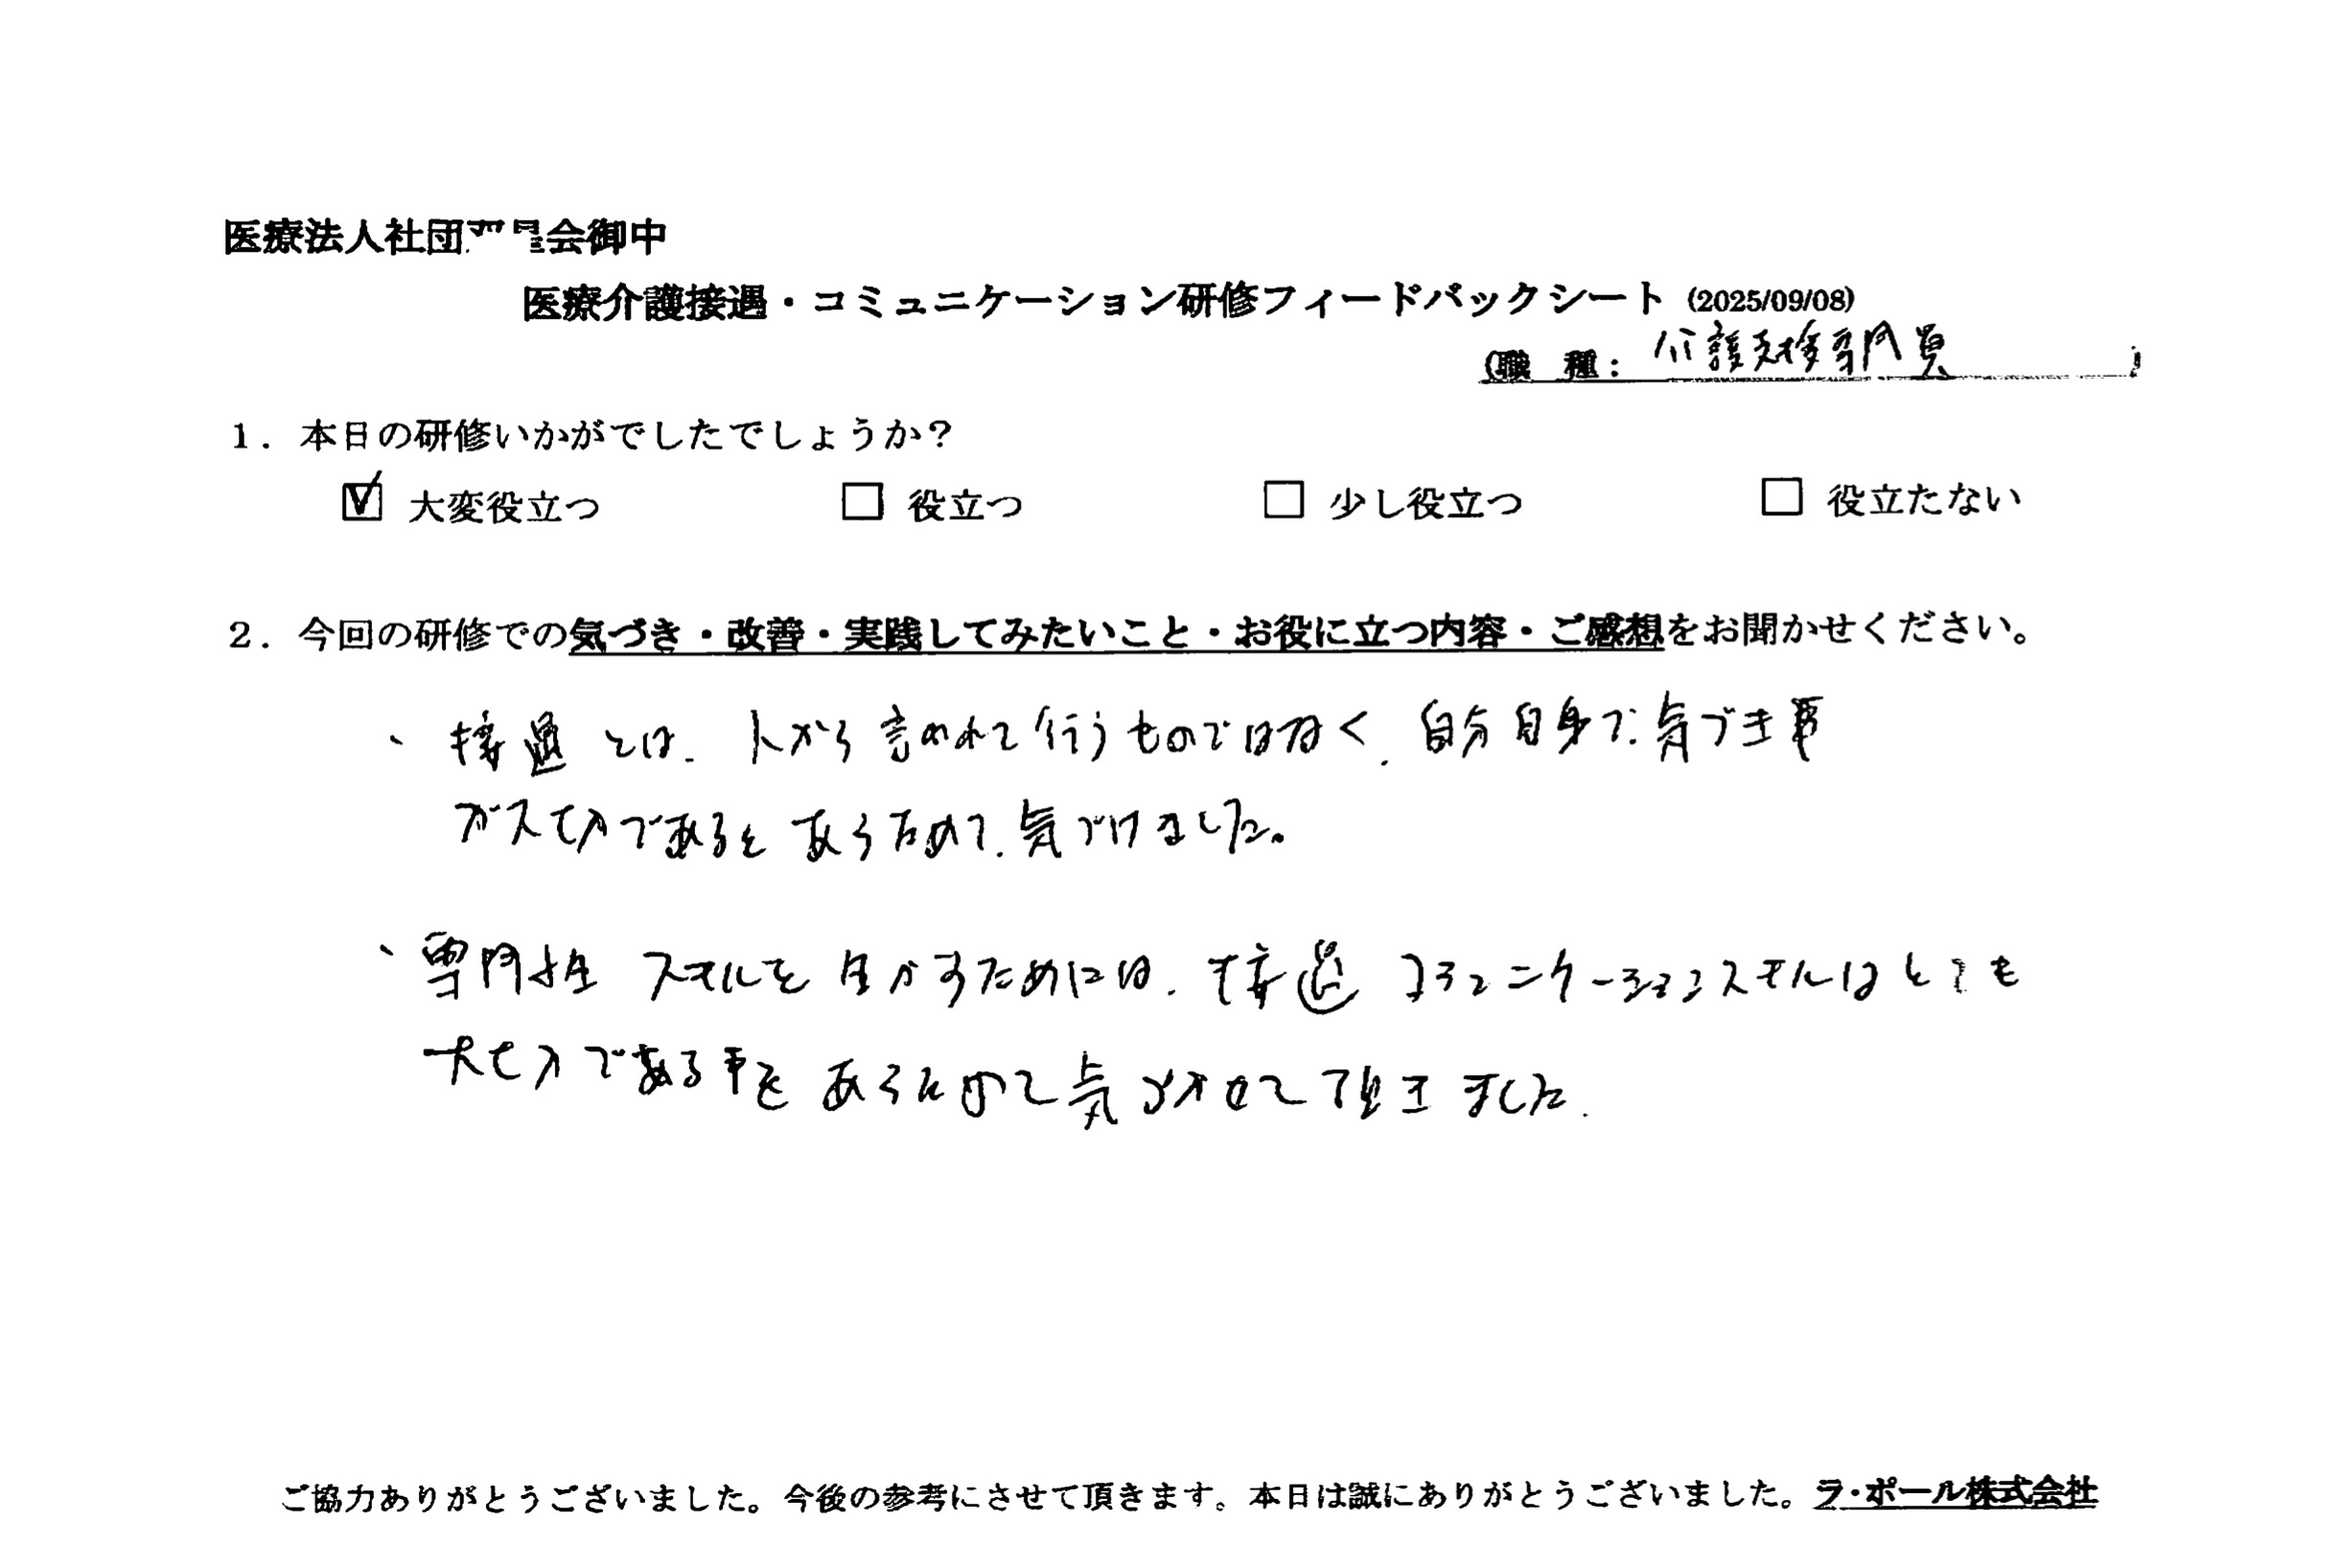 医療法人社団 会御中
医療介護接遇・コミュニケーション研修フィードバックシート (2025/09/08)
(職 種: 介護支援専門員 )
1. 本日の研修いかがでしたでしょうか?
☑ 大変役立つ □ 役立つ □ 少し役立つ □ 役立たない
2. 今回の研修での気づき・改善・実践してみたいこと・お役に立つ内容・ご感想をお聞かせください。
、接遇とは、人から言われて行うものではなく、自分自身で気づき事
が大切であるとあらためて、気づけました。
、専門性 スキルを生かすためには、接遇 コミュニケーションスキルはとても
大切である事をあらためて気づかせて頂きました.
ご協力ありがとうございました。今後の参考にさせて頂きます。本日は誠にありがとうございました。ラ・ポール株式会社